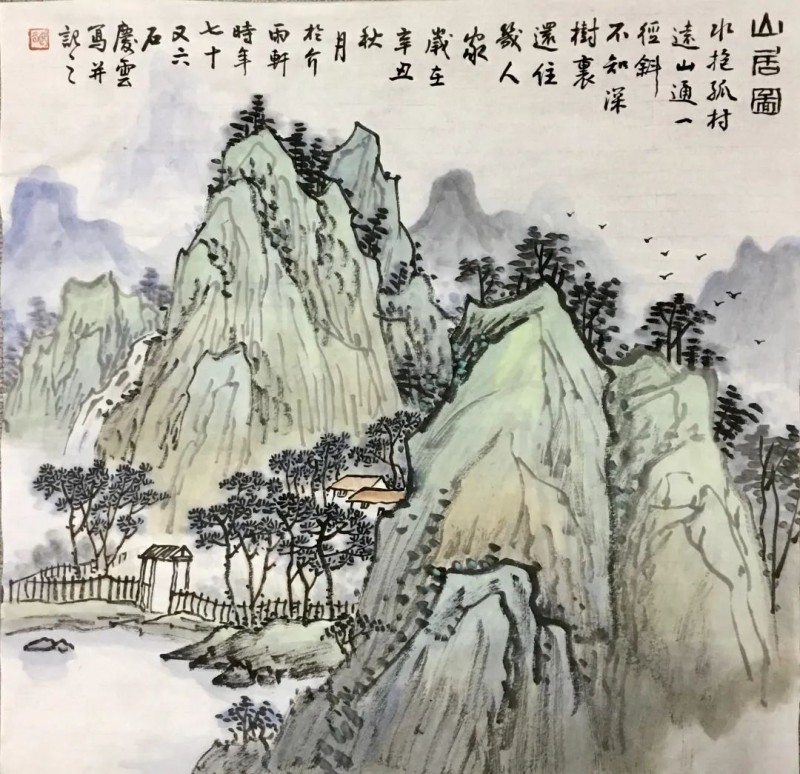 山居圖
水抱孤村
遠山通一
徑斜
不知深
樹裏
還住
幾人
家
歲在
辛丑
秋
月
於介
雨軒
時年
七十
又六
石
慶雲
寫并
記之